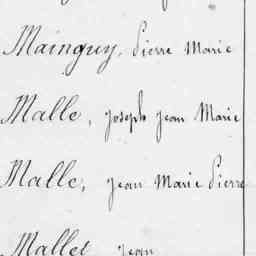 Mainguy, Pierre Marie
Malle, Joseph Jean Marie
Malle, Jean Marie Pierre
Mallet, Jean